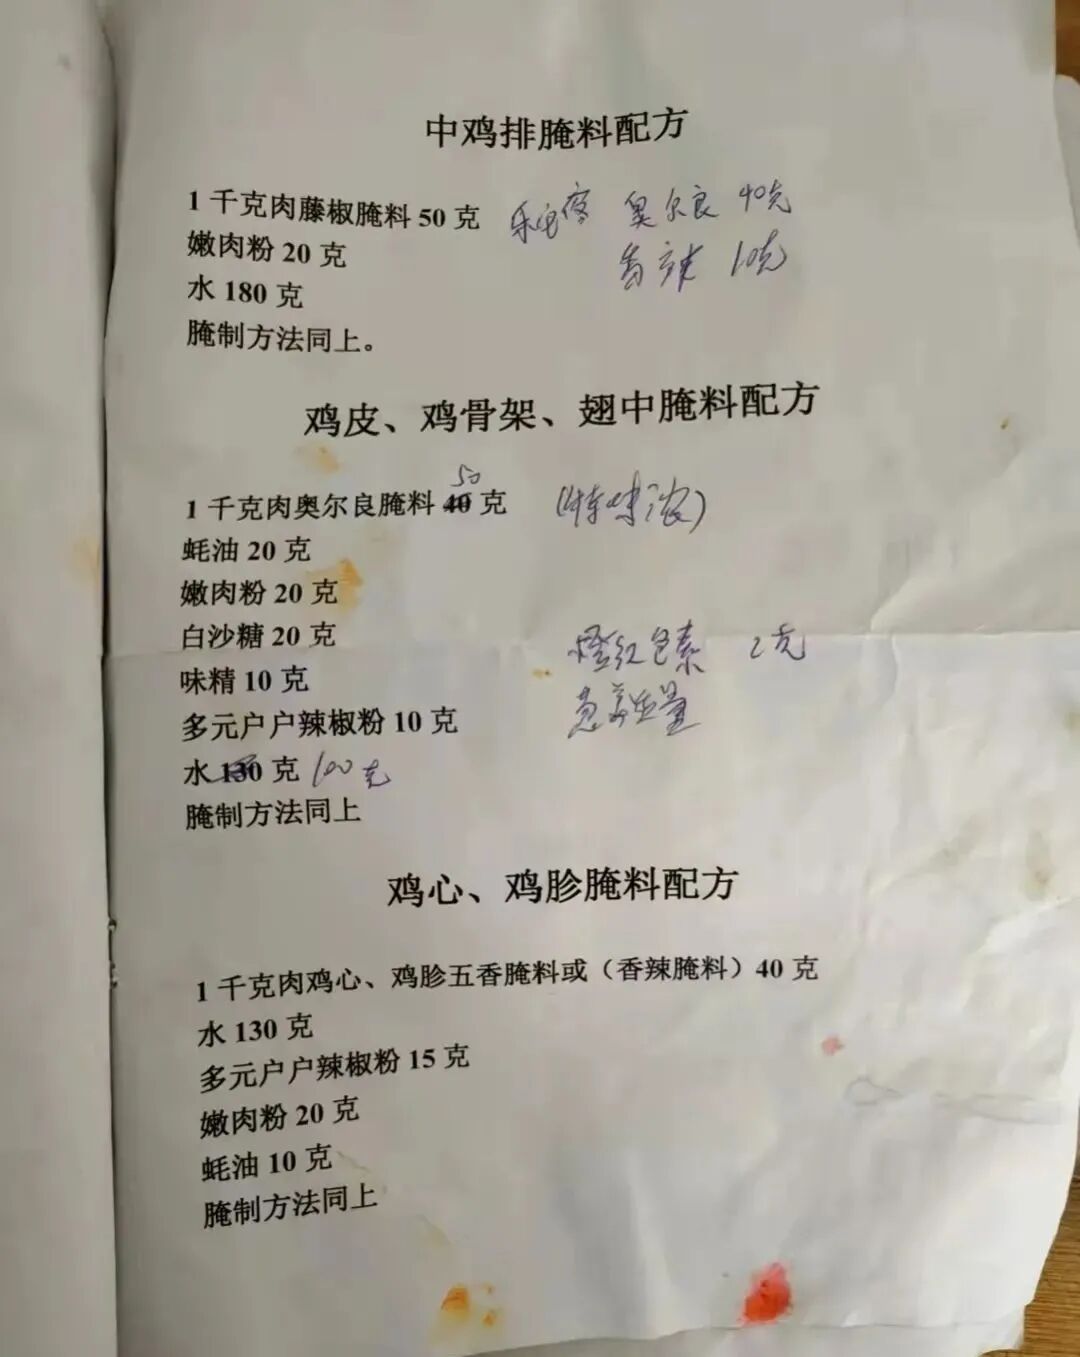 中鸡排腌料配方
1 千克肉藤椒腌料 50 克 奥尔良 40克
嫩肉粉 20 克 香辣 10克
水 180 克
腌制方法同上。
鸡皮、鸡骨架、翅中腌料配方
50
1 千克肉奥尔良腌料 40 克 (味浓)
蚝油 20 克
嫩肉粉 20 克
白沙糖 20 克 橙红色素 2克
味精 10 克
多元户户辣椒粉 10 克
水 130 克 100 克
腌制方法同上
鸡心、鸡胗腌料配方
1 千克肉鸡心、鸡胗五香腌料或（香辣腌料）40 克
水 130 克
多元户户辣椒粉 15 克
嫩肉粉 20 克
蚝油 10 克
腌制方法同上